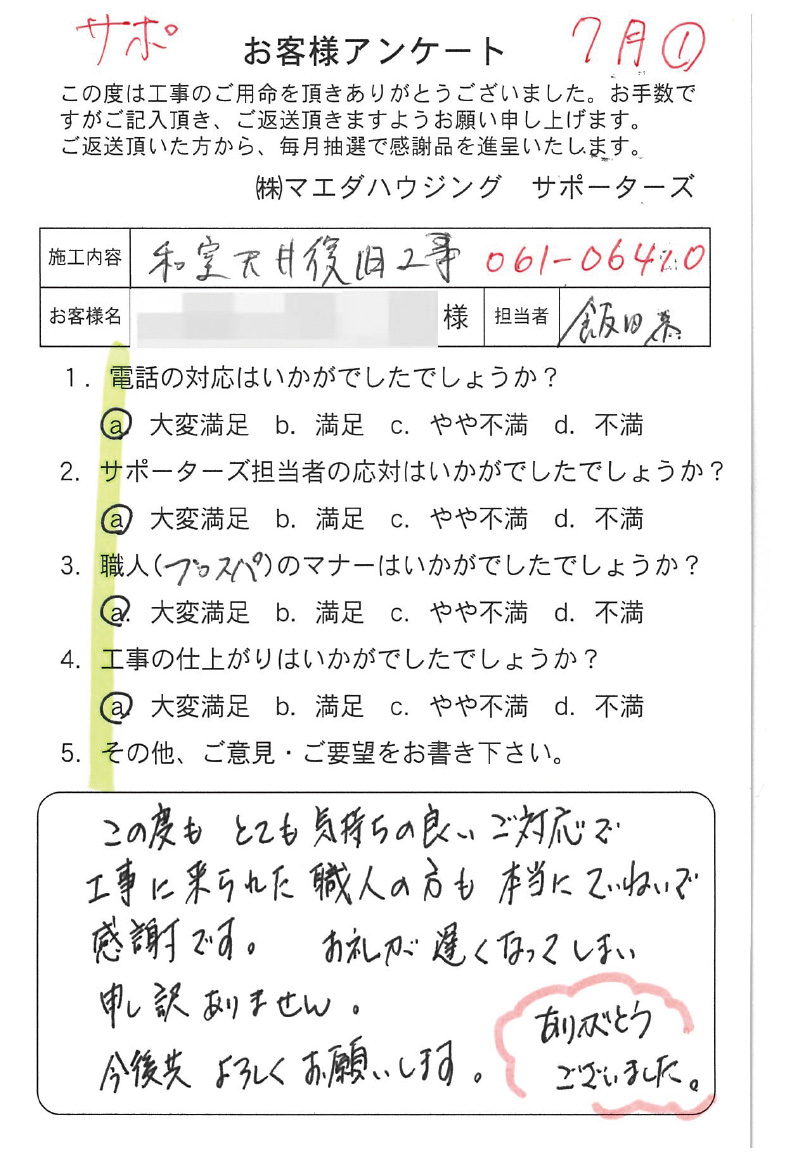 サポ
お客様アンケート
7月①
この度は工事のご用命を頂きありがとうございました。お手数で
すがご記入頂き、ご返送頂きますようお願い申し上げます。
ご返送頂いた方から、毎月抽選で感謝品を進呈いたします。
㈱マエダハウジング　サポーターズ
施工内容 和室天井復旧工事 061-06410
お客様名 様 担当者 飯田
1. 電話の対応はいかがでしたでしょうか？
a. 大変満足 b. 満足 c. やや不満 d. 不満
2. サポーターズ担当者の応対はいかがでしたでしょうか？
a. 大変満足 b. 満足 c. やや不満 d. 不満
3. 職人(プロスパ)のマナーはいかがでしたでしょうか？
a. 大変満足 b. 満足 c. やや不満 d. 不満
4. 工事の仕上がりはいかがでしたでしょうか？
a. 大変満足 b. 満足 c. やや不満 d. 不満
5. その他、ご意見・ご要望をお書き下さい。
この度も とても気持ちの良いご対応で
工事に来られた職人の方も本当にていねいで
感謝です。 お礼が遅くなってしまい
申し訳ありません。
今後共 よろしくお願いします。
ありがとう
ございました。